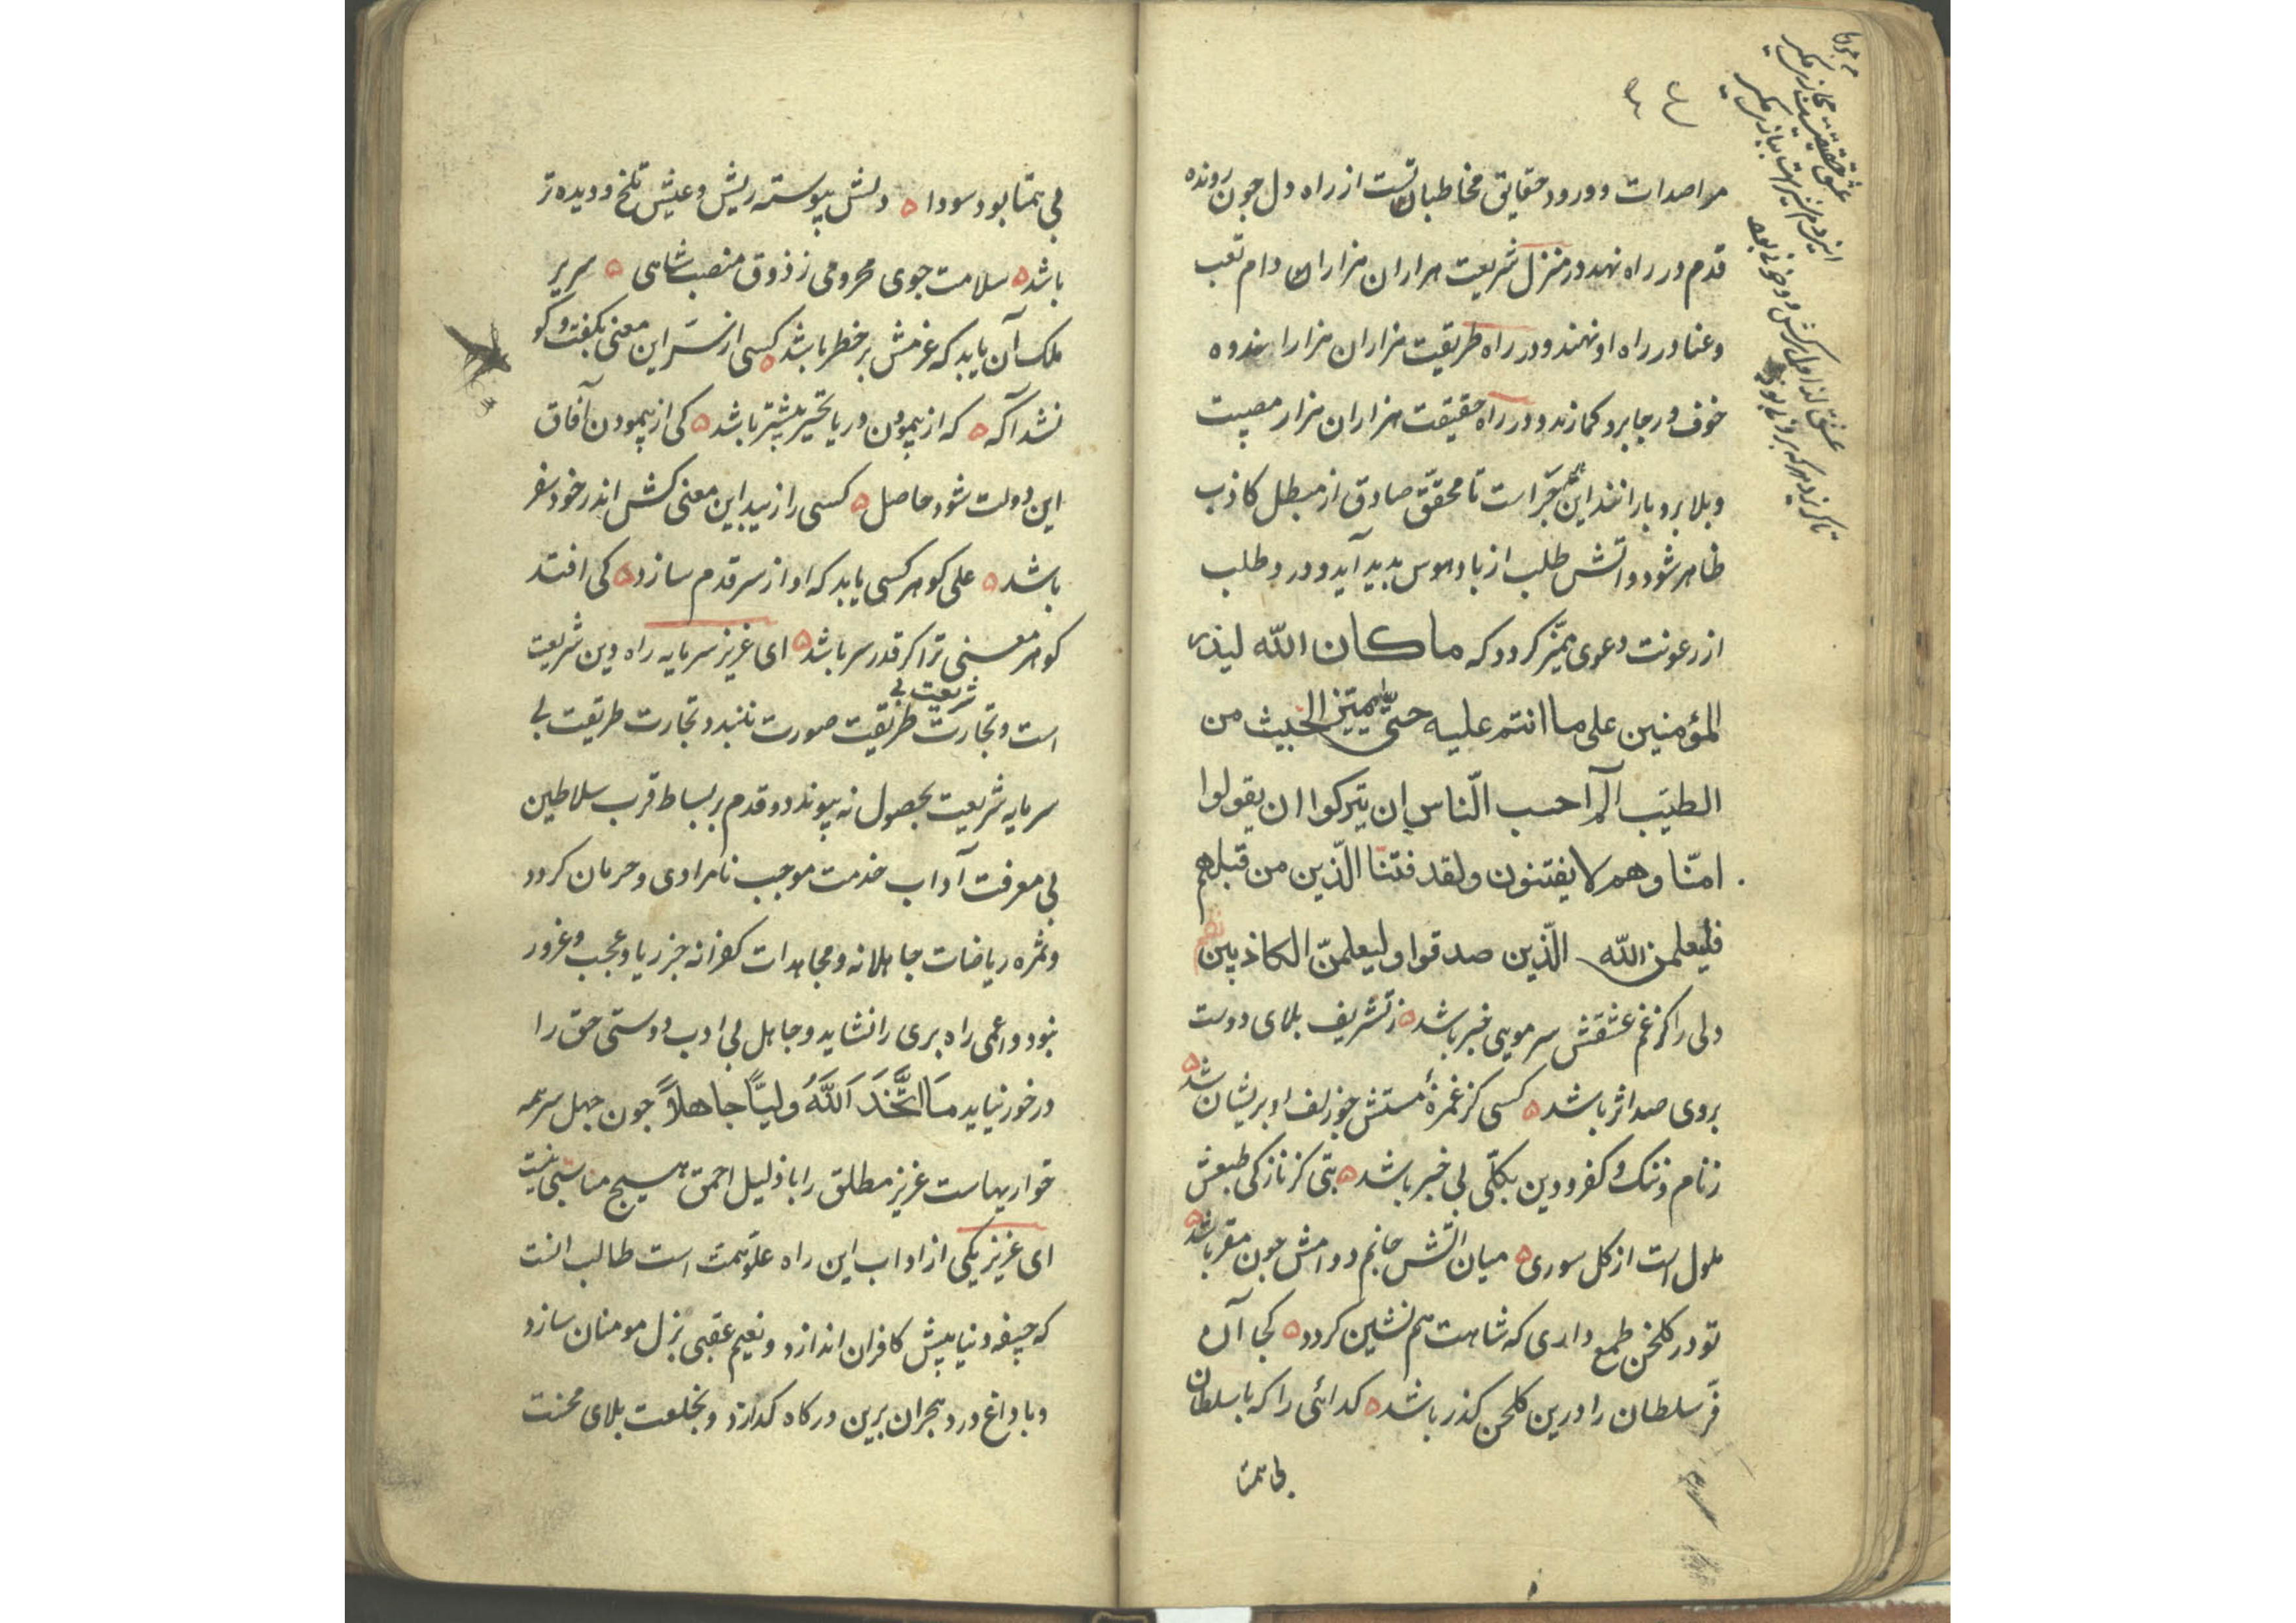 مراصدات وورود حقایق مخاطبان تست از راه دل جون رونده
قدم در راه نهد در منزل شریعت هزاران هزاران دام تعب
وعنا در راه او نهند و در راه طریقت هزاران هزار اندوه
خوف ورجا برو کمارند و در راه حقیقت هزاران هزار مصیبت
وبلا برو بارانند این همه جرا است تا محقق صادق از مبطل کاذب
ظاهر شود و آتش طلب از باد هوس بدید آید و درد طلب
از رعونت دعوی ممیز کردد که ما کان الله لیذر
المؤمنین علی ما انتم علیه حتی یمیز الخبیث من
الطیب الم احسب النّاس ان یترکوا ان یقولوا
امنّا وهم لا یفتنون ولقد فتنا الّذین من قبلهم
فلیعلمن الله الّذین صدقوا ولیعلمنّ الکاذبین نظم
دلی را کز غم عشقش سر مویی خبر باشد ز تشریف بلای دوست
بروی صد اثر باشد کسی کز غمزهٔ مستش جو زلف او بریشان شد
ز نام و ننک و کفر و دین بکلّی بی خبر باشد بتی کز نازکی طبعش
ملول است از کل سوری میان آتش جانم دوامش جون مقر باشد
تو در کلخن طمع داری که شاهت هم نشین کردد کجا آن
فرّ سلطان را درین کلخن کذر باشد کدائی را که با سلطان
بی همتا
بی همتا بود سودا دلش پیوسته ریش و عیش تلخ و دیده تر
باشد سلامت جوی محرومی ز ذوق منصب شاهی سریر
ملک آن یابد که عزمش بر خطر باشد کسی از سرّ این معنی بکفت و کو
نشد آکه که از پیمودن دریا تحیّر بیشتر باشد کی از پیمودن آفاق
این دولت شود حاصل کسی را زیبد این معنی کش اندر خود سفر
باشد علی کوهر کسی یابد که او از سر قدم سازد کی افتد
کوهر معنی ترا کر قدر سر باشد ای عزیز سرمایه راه دین شریعت
است و تجارت طریقت بی شریعت صورت نبندد و تجارت طریقت بی
سرمایه شریعت بحصول نه پیوندد و قدم بر بساط قرب سلاطین
بی معرفت آداب خدمت موجب نامرادی و حرمان کردد
و ثمره ریاضات جاهلانه و مجاهدات کفرانه جز ریا و عجب و غرور
نبود و اعمی راه بری را نشاید و جاهل بی ادب دوستی حق را
در خور نیاید مَا اتَّخَذَ اللّهُ ولیًّا جاهلاً جون جهل سر همه
خواریهاست عزیز مطلق را با ذلیل احمق هیسج مناسبتی نیست
ای عزیز یکی از اداب این راه علوّ همت است طالب انست
که جیفه دنیا پیش کافران اندازد و نعیم عقبی نزل مومنان سازد
و با داغ درد هجران برین درکاه کدازد و بخلعت بلای محنت